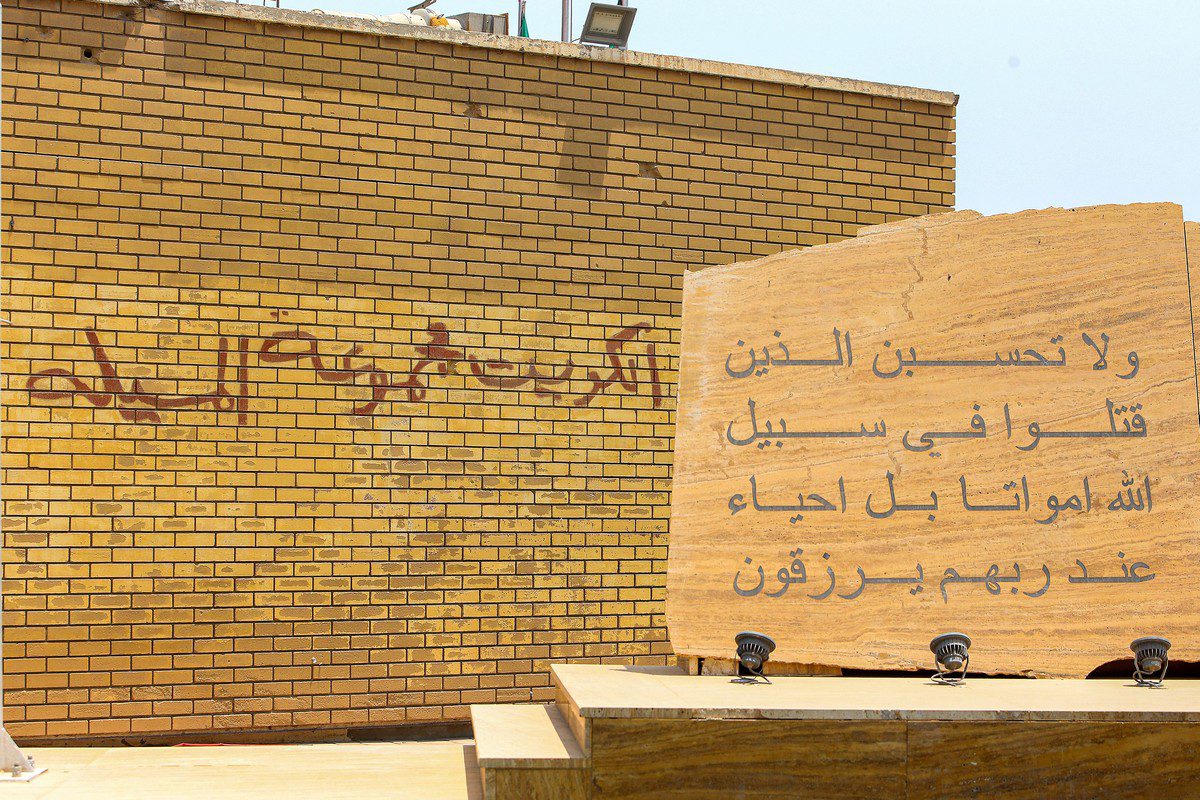 ولا تحسبن الذين
قتلوا في سبيل
الله امواتا بل احياء
عند ربهم يرزقون
الكويت مجموعة المسيله